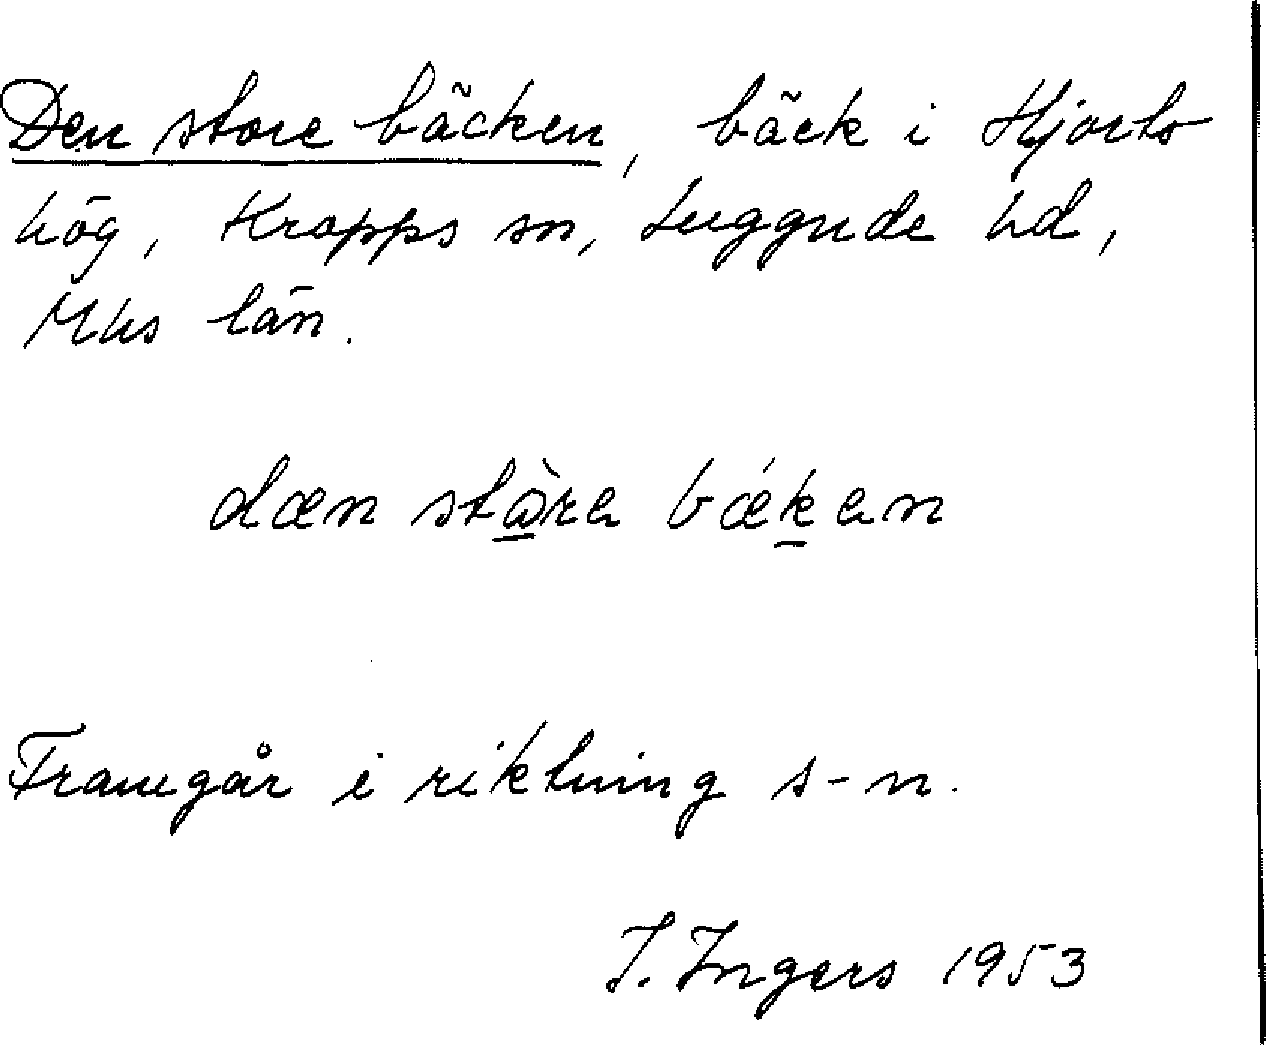 Den store bäcken, bäck i Hjorts
hög, Kropps sn, Luggude hd,
Mhs län.
dæn stòre bǽken
Framgår i riktning s-n.
I. Ingers 1953